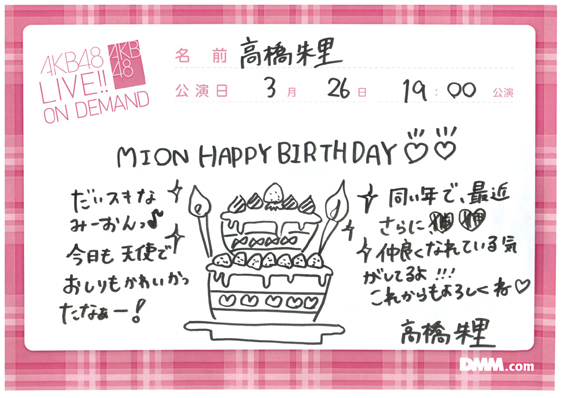 AKB48
LIVE!!
ON DEMAND
AKB
48
名前 高橋朱里
公演日 3月 26日 19:00 公演
MION HAPPY BIRTHDAY♡♡
だいスキな
みーおんっ♪
今日も天使で
おしりもかわいかっ
たなぁー!
同い年で、最近
さらに
仲良くなれている気
がしてるよ!!!
これからもよろしくね♡
高橋朱里
DMM.com